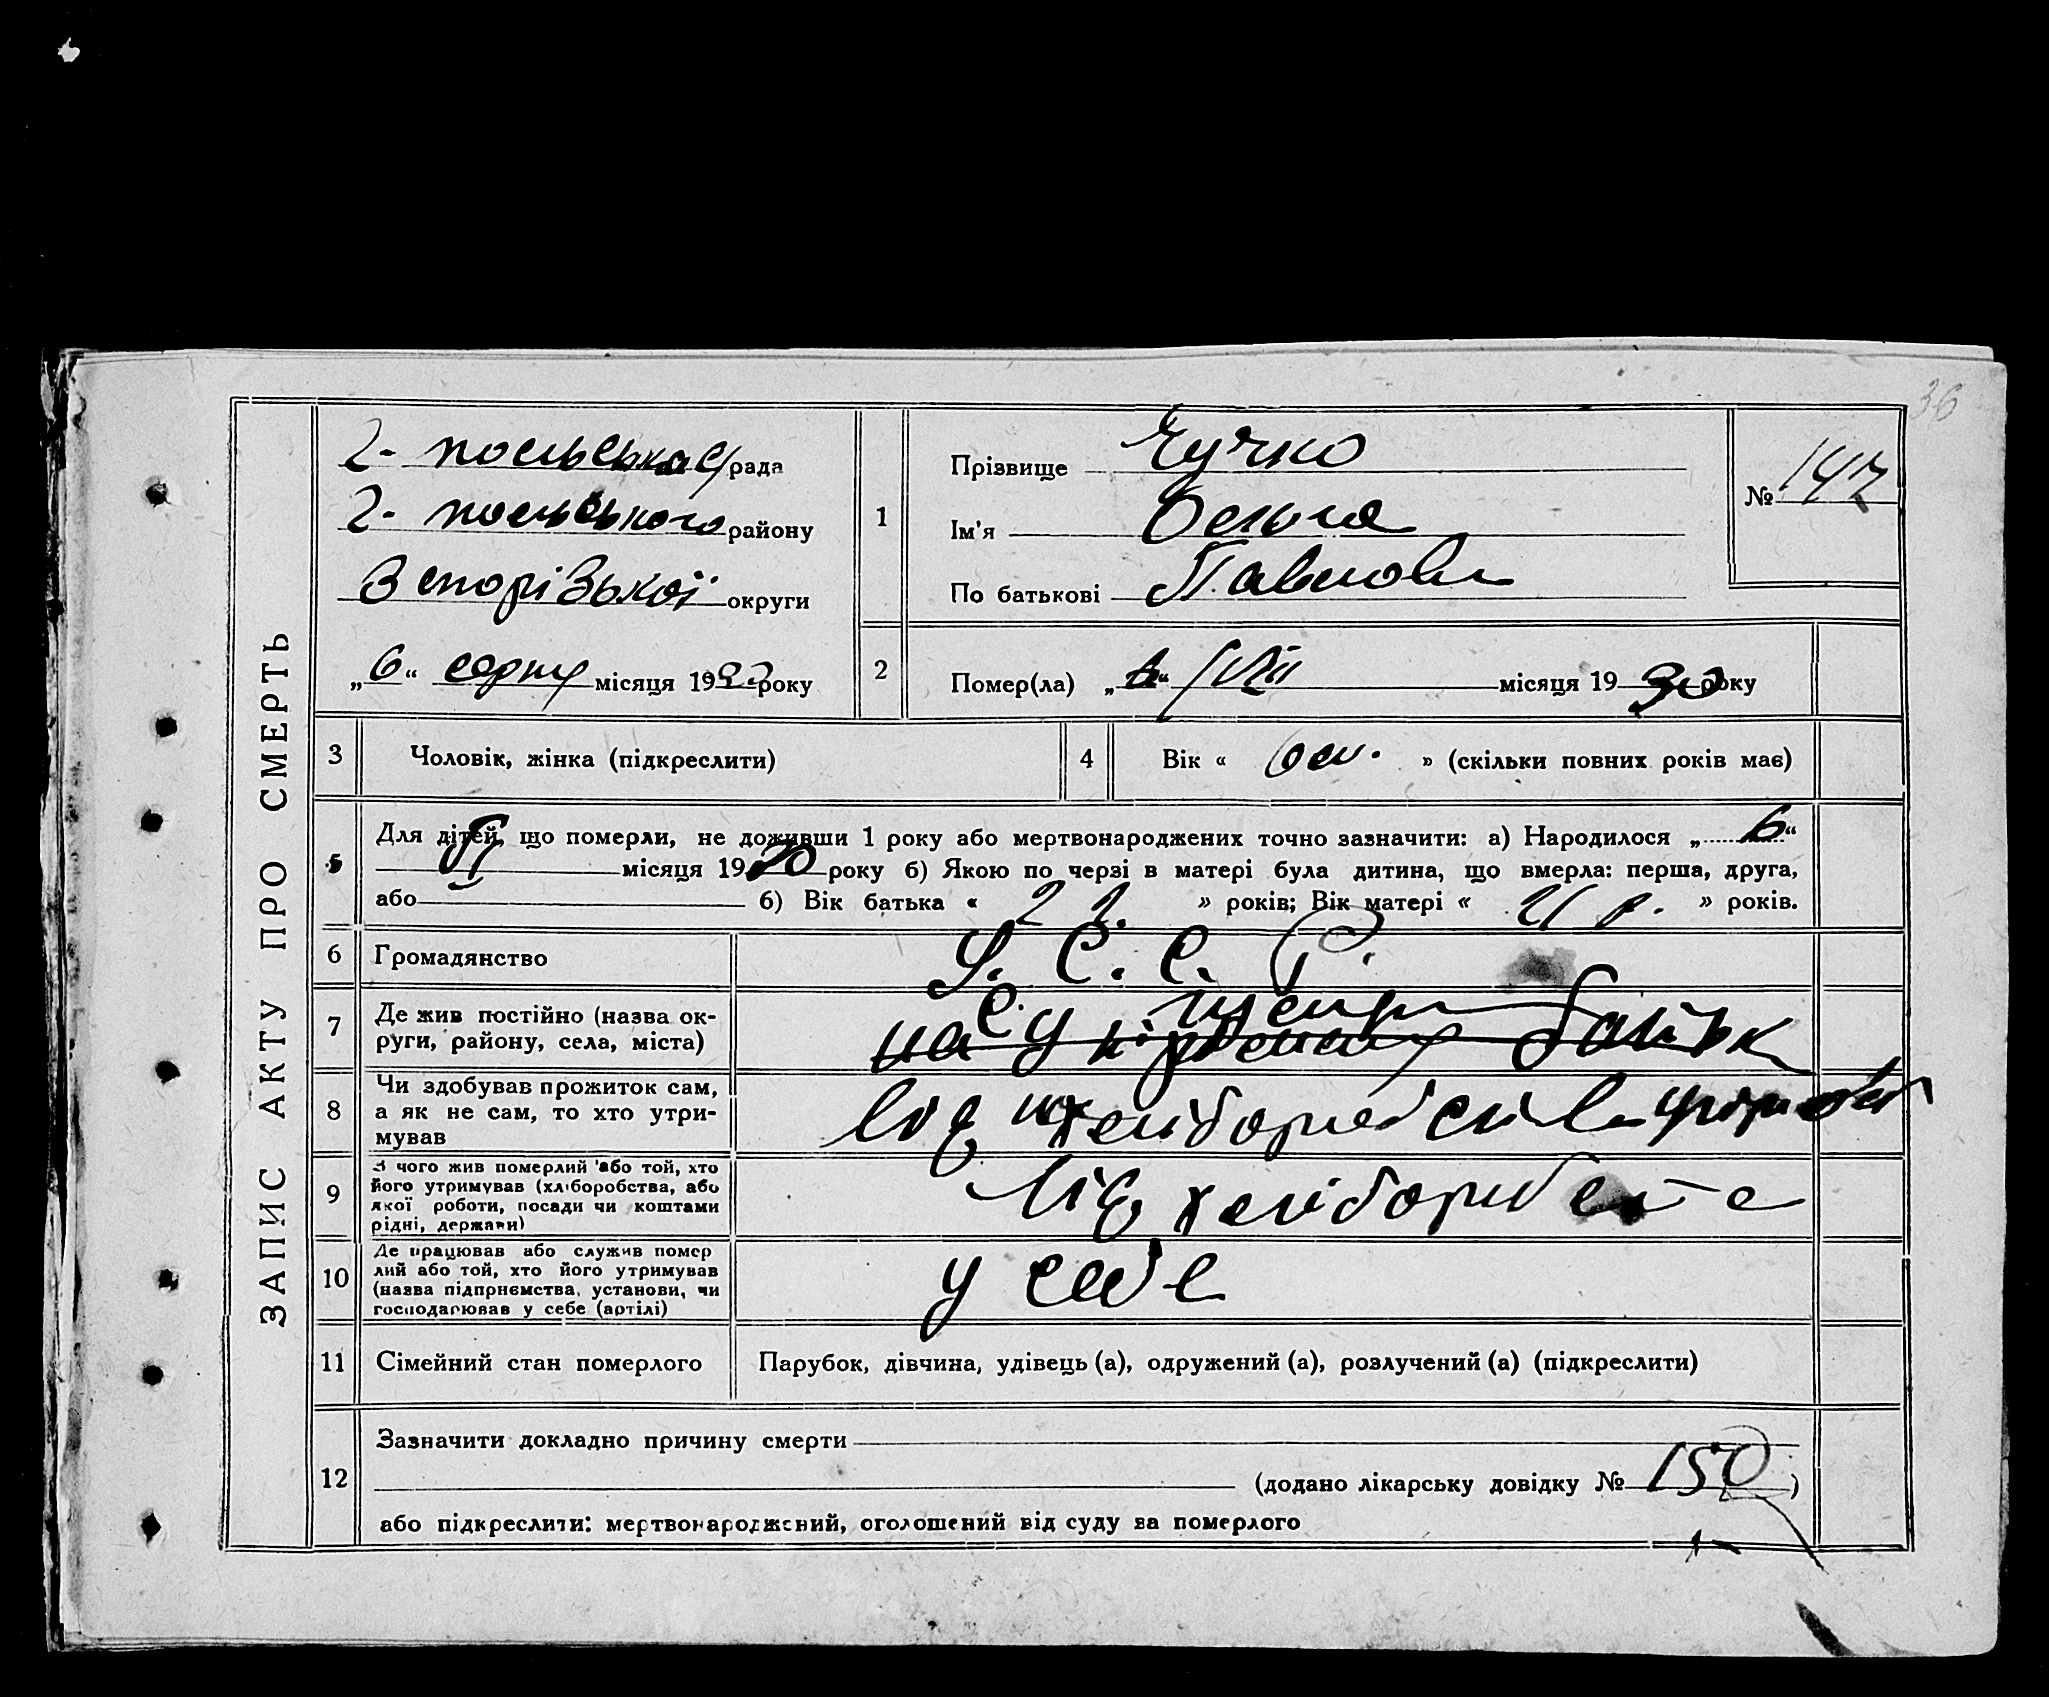 36
ЗАПИС АКТУ ПРО СМЕРТЬ
2- польська рада
2- польського району
Запорізької округи
„6“ серпн місяця 1930 року
1
Прізвище Чучко
Ім'я Ольга
По батькові Павлові
№ 147
2
Помер(ла) VIII місяця 1930 року
3
Чоловік, жінка (підкреслити)
4
Вік « » (скільки повних років має)
5
Для дітей, що померли, не доживши 1 року або мертвонароджених точно зазначити: а) Народилося „6“
VI місяця 1930 року б) Якою по черзі в матері була дитина, що вмерла: перша, друга,
або б) Вік батька « » років; Вік матері « 21 р. » років.
6
Громадянство
У. С. С. Р.
7
Де жив постійно (назва округи, району, села, міста)
8
Чи здобував прожиток сам,
а як не сам, то хто утримував
від
9
З чого жив померлий або той, хто
його утримував (хліборобства, або
якої роботи, посади чи коштами
рідні, держави)
Від
10
Де працював або служив померлий або той, хто його утримував
(назва підприємства, установи, чи
господарював у себе (артілі)
у себе
11
Сімейний стан померлого
Парубок, дівчина, удівець (а), одружений (а), розлучений (а) (підкреслити)
12
Зазначити докладно причину смерти
(додано лікарську довідку № 150)
або підкреслити: мертвонароджений, оголошений від суду за померлого